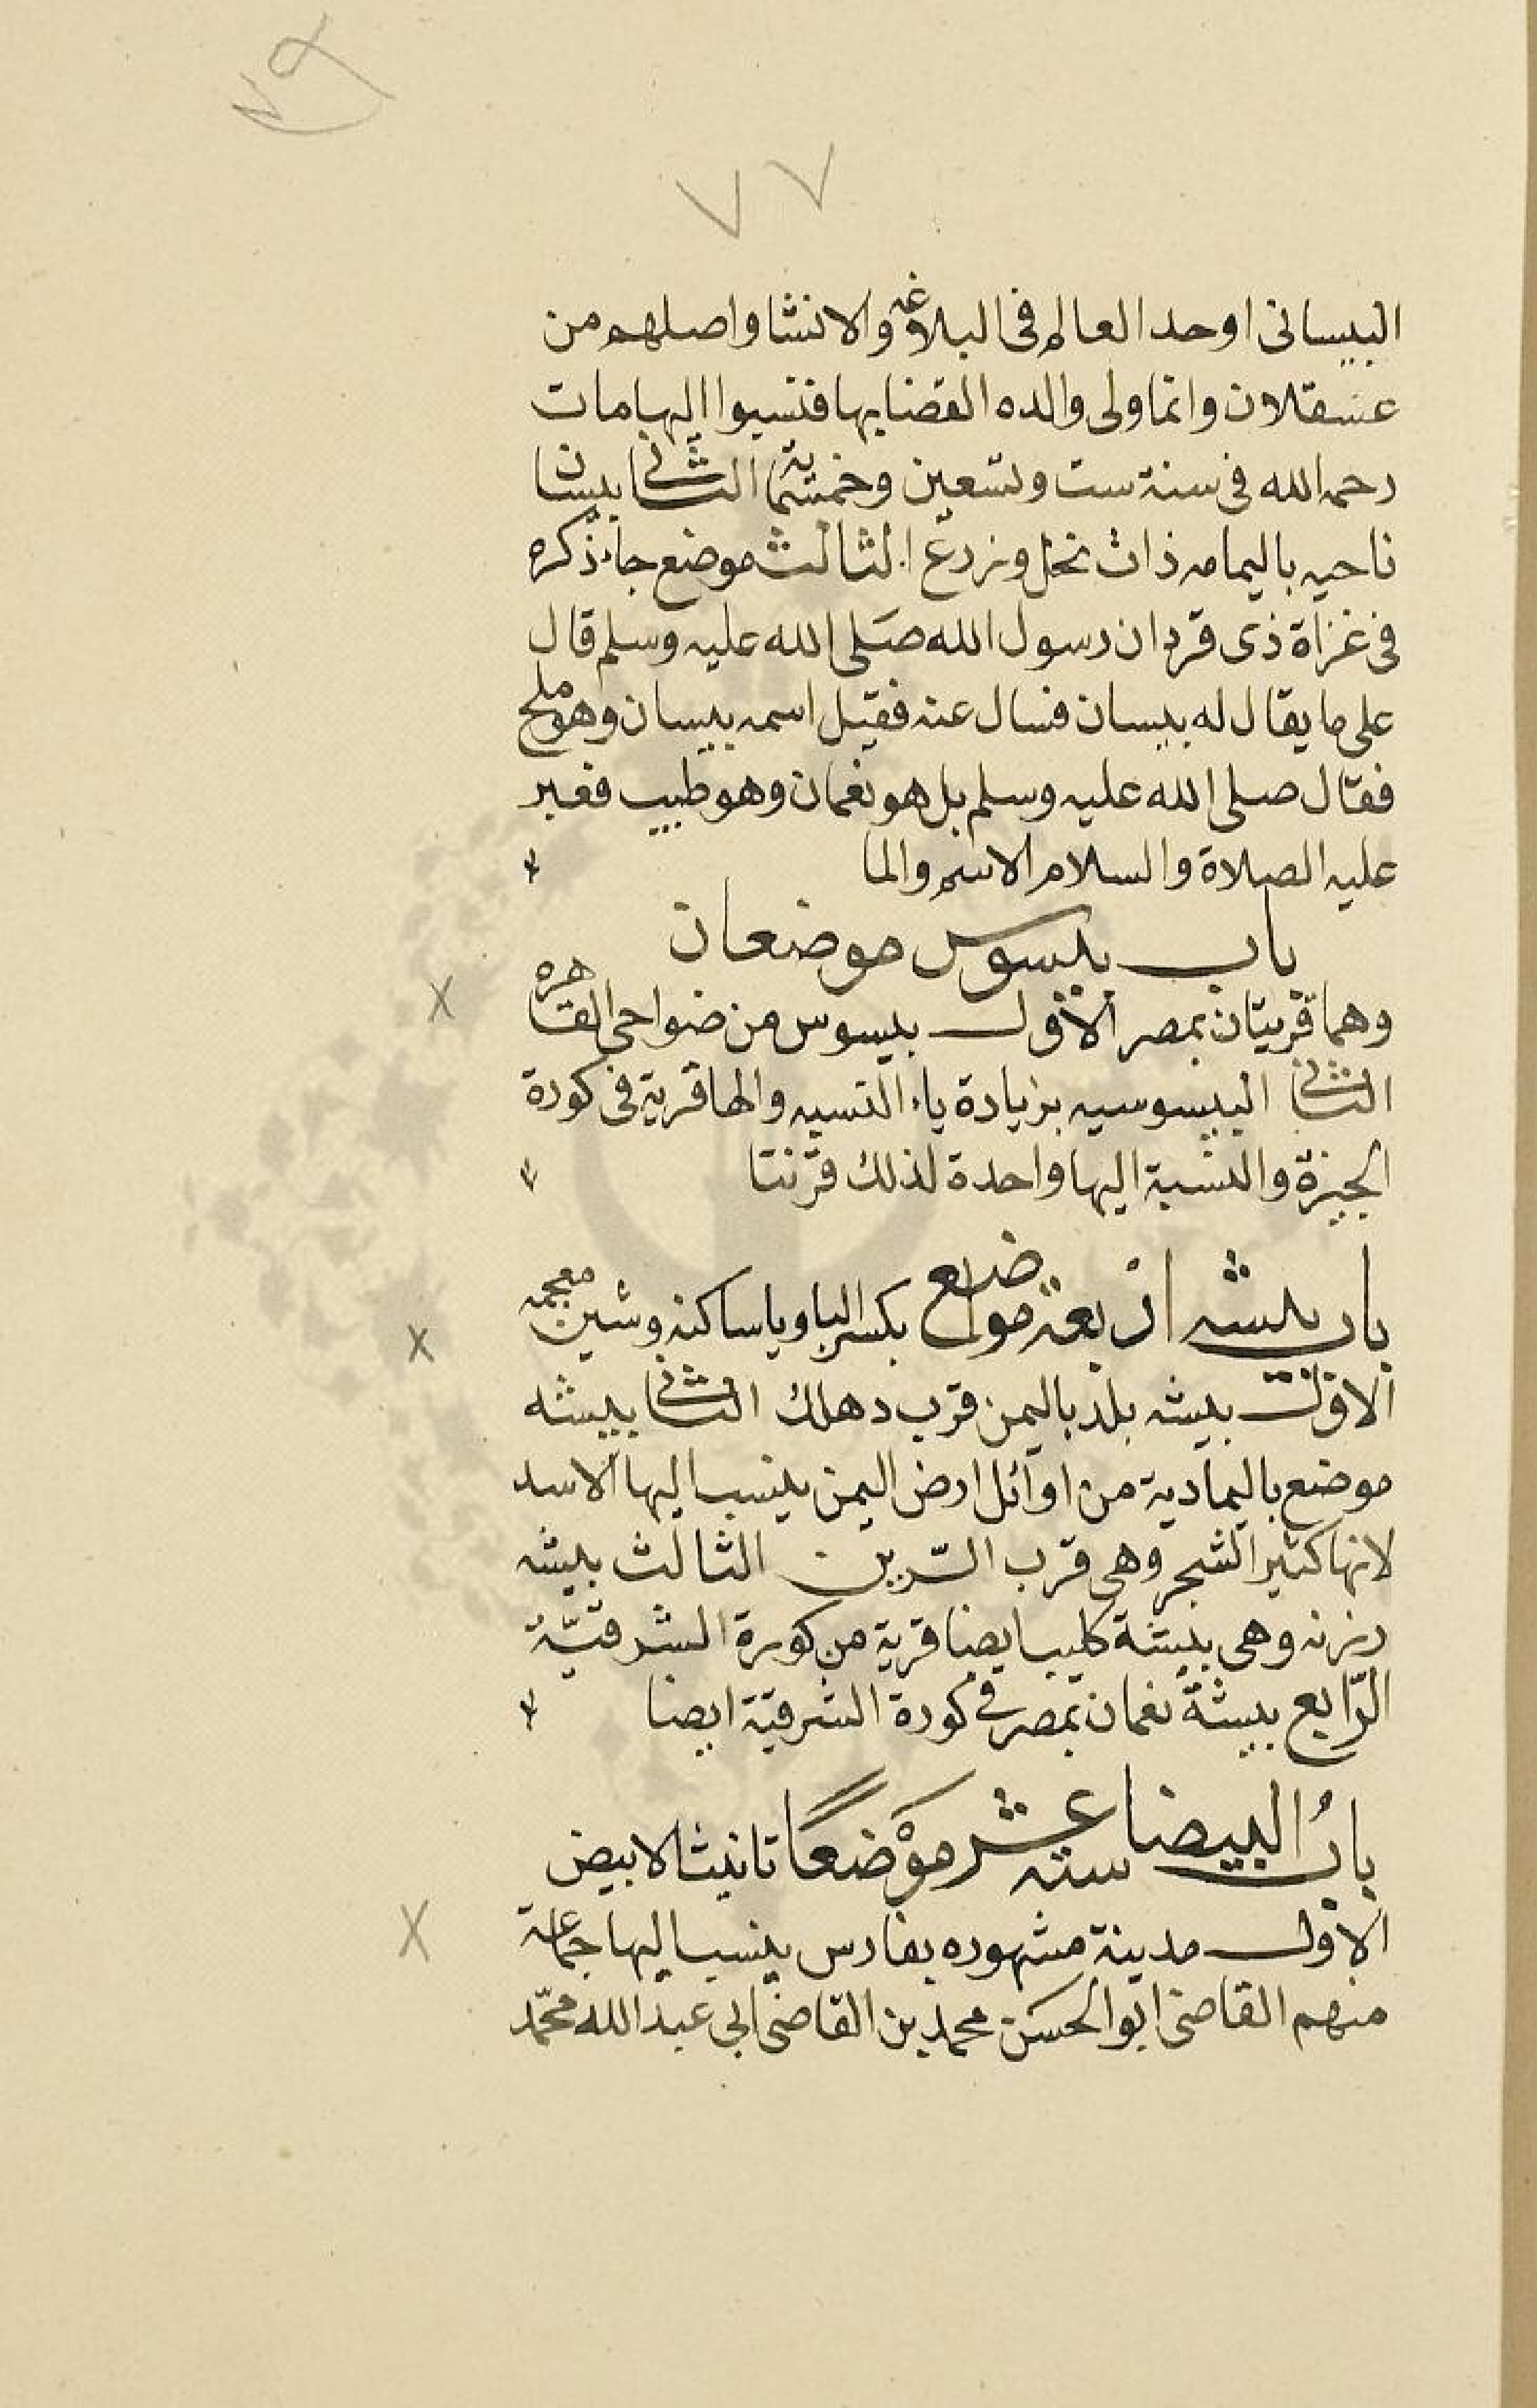 ٧٧
البيساني اوحد العالم في البلاغه والانشا واصلهم من
عسقلان وانما ولى والده القضا بها فنسبوا اليها مات
رحمه الله في سنة ست وتسعين وخمسمائة الثاني بيسان
ناحيه باليمامه ذات نخل وزرع الثالث موضع جاء ذكره
في غزاة ذى قرد ان رسول الله صلى الله عليه وسلم قال
على ما يقال له بيسان فسال عنه فقيل اسمه بيسان وهو ملح
فقال صلى الله عليه وسلم بل هو نعمان وهو طيب فغير
عليه الصلاة والسلام الاسم والما
باب بيسوس موضعان
وهما قريتان بمصر الاول بيسوس من ضواحى القاهره
الثاني البيسوسيه بزيادة ياء النسبه والها قرية في كورة
الجيزة والنسبة اليها واحدة لذلك قرنتا
باب بيشه اربعة مواضع بكسر البا ويا ساكنه وشين معجمه
الاول بيشه بلد باليمن قرب دهلك الثاني بيشه
موضع باليمادية من اوائل ارض اليمن ينسب اليها الاسد
لانها كثير الشجر وهى قرب السّرين الثالث بيشه
رنزنه وهى بيشة كليب ايضا قرية من كورة الشرقيّة
الرّابع بيشة نعمان بمصر في كورة الشرقية ايضا
بابُ البيضا ستة عشر موْضعًا تانيث الابيض
الاول مدينة مشهوره بفارس ينسب اليها جماعة
منهم القاضى ابو الحسَن محمد بن القاضى ابى عبد الله محمّد